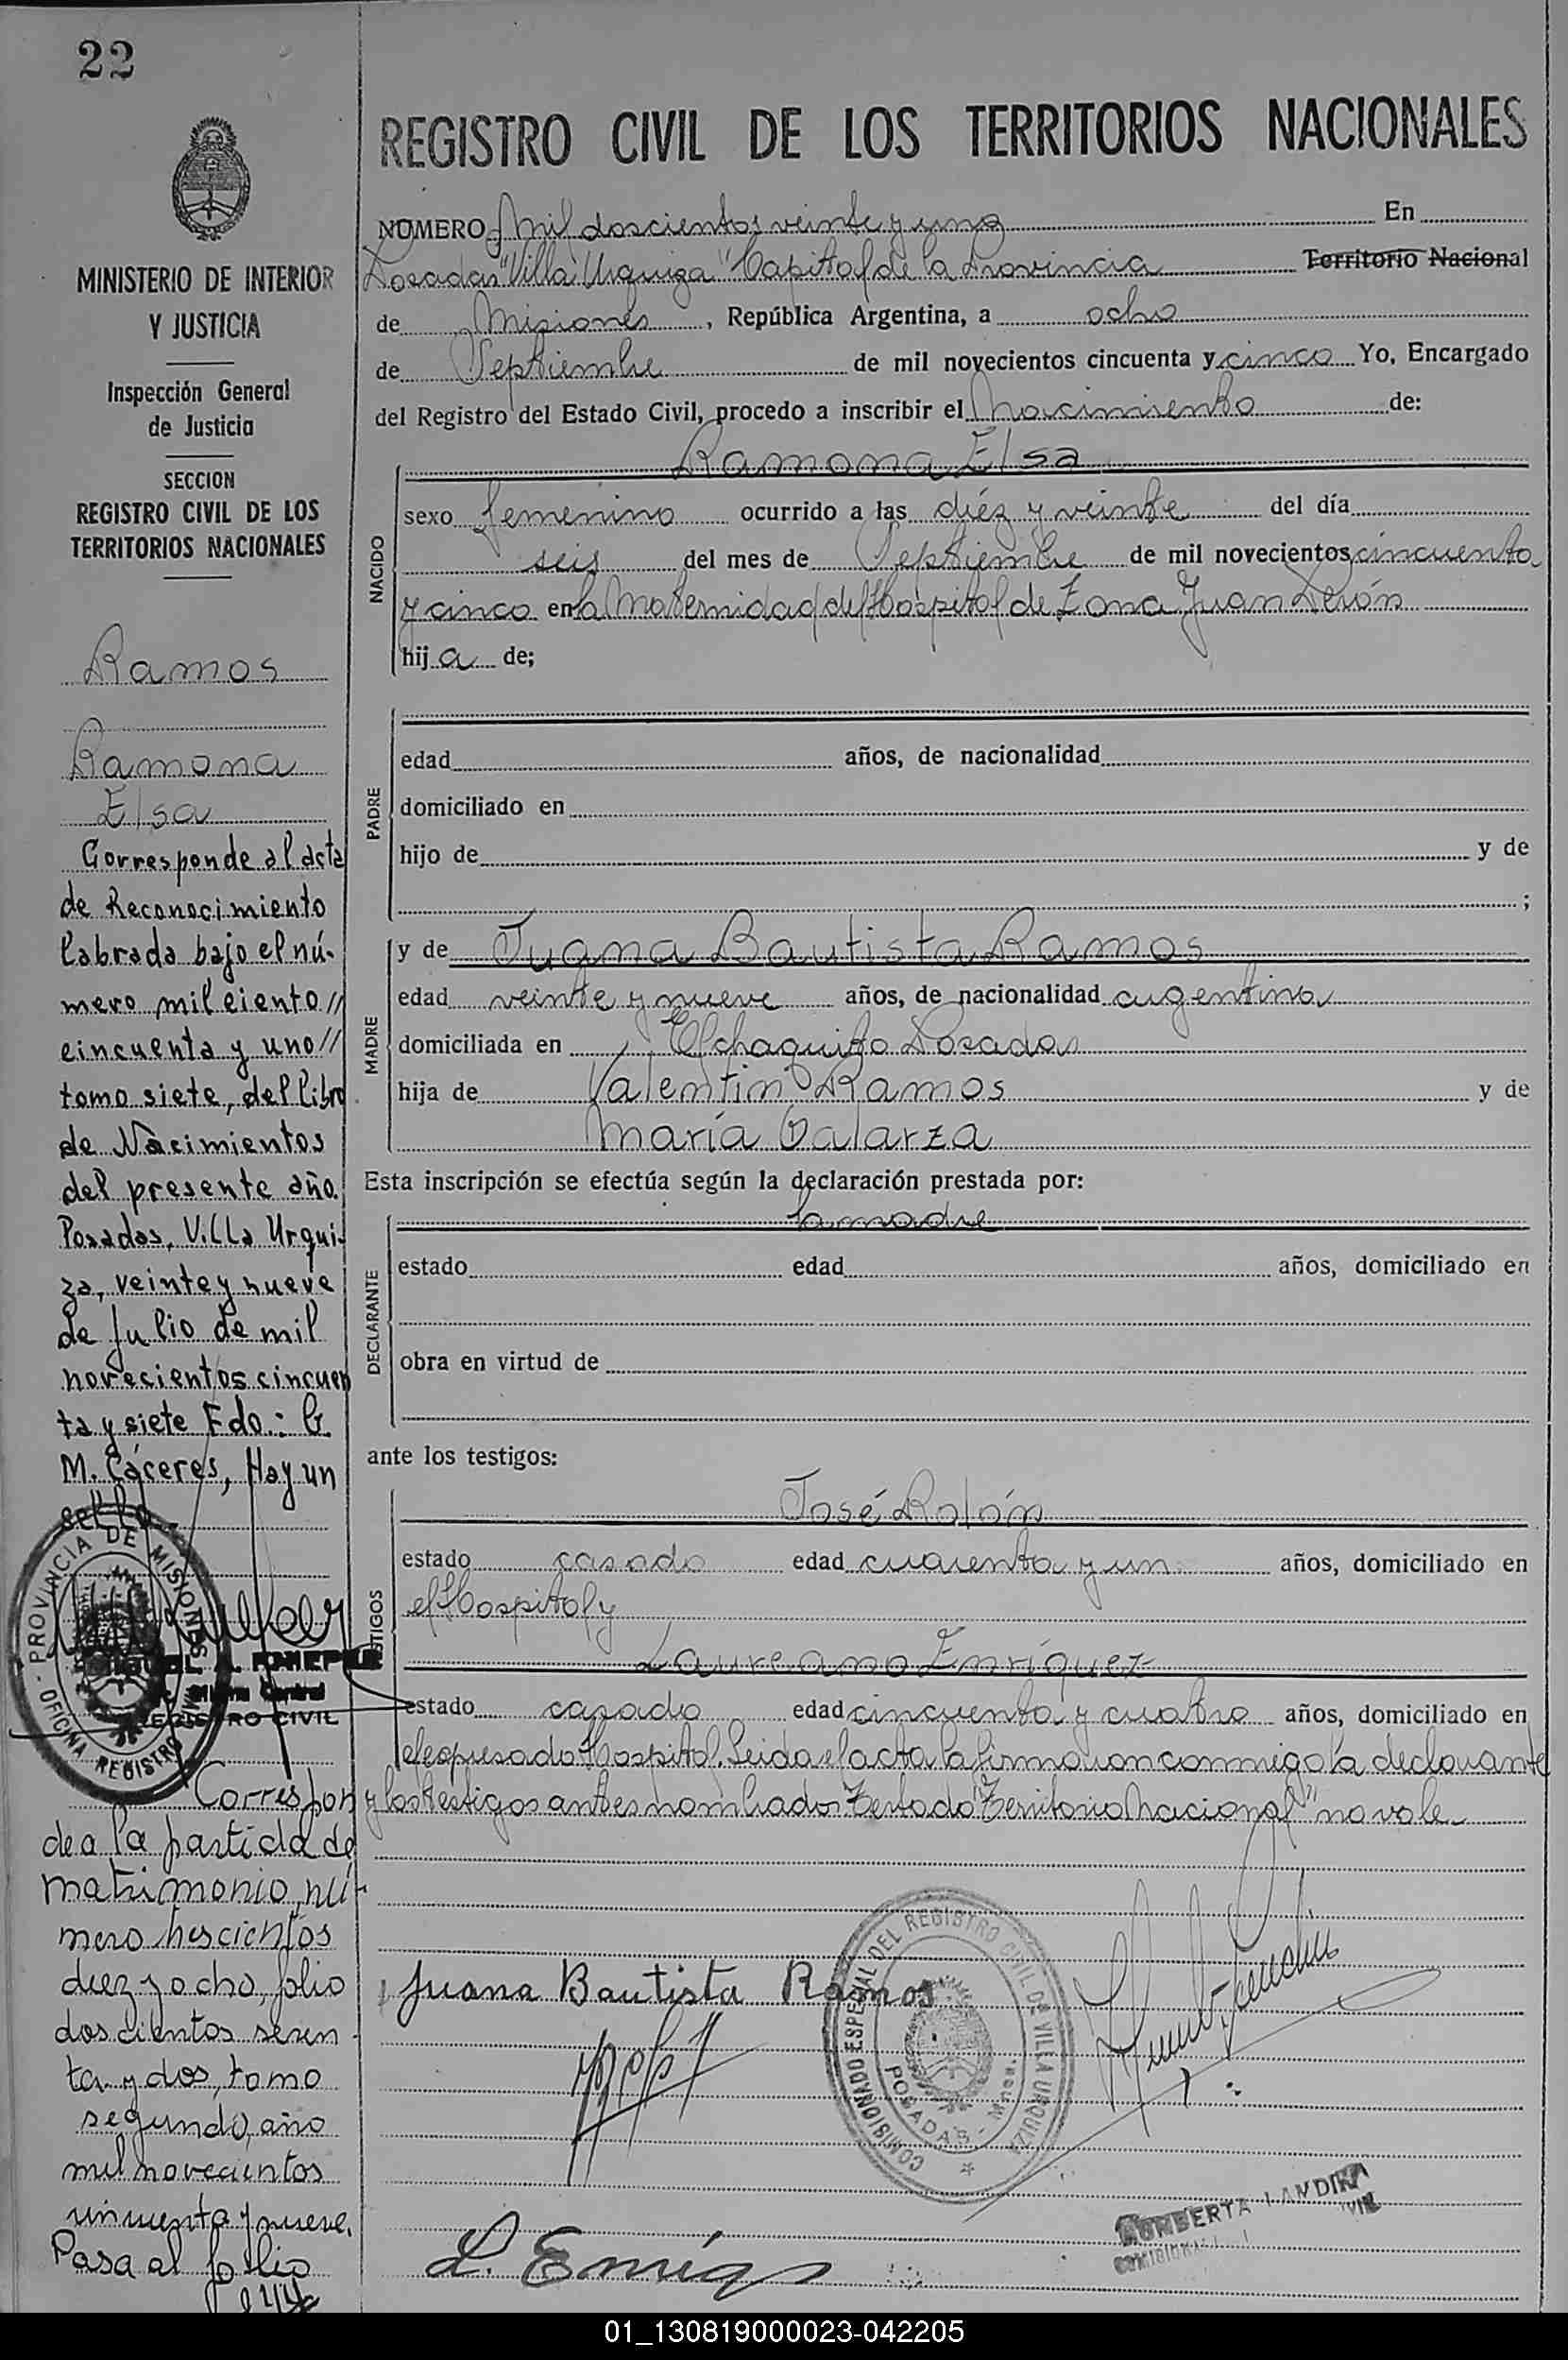 22
MINISTERIO DE INTERIOR
Y JUSTICIA
Inspección General
de Justicia
SECCION
REGISTRO CIVIL DE LOS
TERRITORIOS NACIONALES
Ramos
Ramona
Elsa
Corresponde al acta
de Reconocimiento
labrada bajo el nú-
mero mil ciento //
cincuenta y uno //
tomo siete, del libro
de Nacimientos
del presente año.
Posadas, Villa Urqui-
za, veinte y nueve
de Julio de mil
novecientos cincuen
ta y siete Fdo.: G.
M. Cáceres, Hay un
sello
PROVINCIA DE MISIONES
OFICINA REGISTRO
REGISTRO CIVIL
Correspon
de a la partida de
matrimonio, nú-
mero trescientos
diez y ocho, folio
doscientos seten
ta y dos, tomo
segundo, año
mil novecientos
cincuenta y nueve.
Pasa al folio
REGISTRO CIVIL DE LOS TERRITORIOS NACIONALES
NUMERO Mil doscientos veinte y uno En
Posadas "Villa Urquiza" Capital de la Provincia Territorio Nacional
de Misiones, República Argentina, a ocho
de Septiembre de mil novecientos cincuenta y cinco Yo, Encargado
del Registro del Estado Civil, procedo a inscribir el Nacimiento de:
NACIDO
Ramona Elsa
sexo femenino ocurrido a las diéz y veinte del día
seis del mes de Septiembre de mil novecientos cincuenta
y cinco en la Maternidad del Hospital de Zona Juan Perón
hija de;
PADRE
edad años, de nacionalidad
domiciliado en
hijo de y de
;
MADRE
y de Juana Bautista Ramos
edad veinte y nueve años, de nacionalidad argentina
domiciliada en El chaquito Posadas
hija de Valentin Ramos y de
María Galarza
Esta inscripción se efectúa según la declaración prestada por:
DECLARANTE
la madre
estado edad años, domiciliado en
obra en virtud de
ante los testigos:
TIGOS
José Rolón
estado casado edad cuarenta y un años, domiciliado en
el Hospital y
Laureano Enríquez
estado casado edad cincuenta y cuatro años, domiciliado en
el expresado Hospital. Leida el acta la firmaron conmigo la declarante
y los testigos antes nombrados. Testado "Territorio Nacional" no vale
Juana Bautista Ramos
COMISIONADO ESPECIAL DEL REGISTRO CIVIL DE VILLA URQUIZA
POSADAS - Mnes.
L. Enriqz
01_130819000023-042205